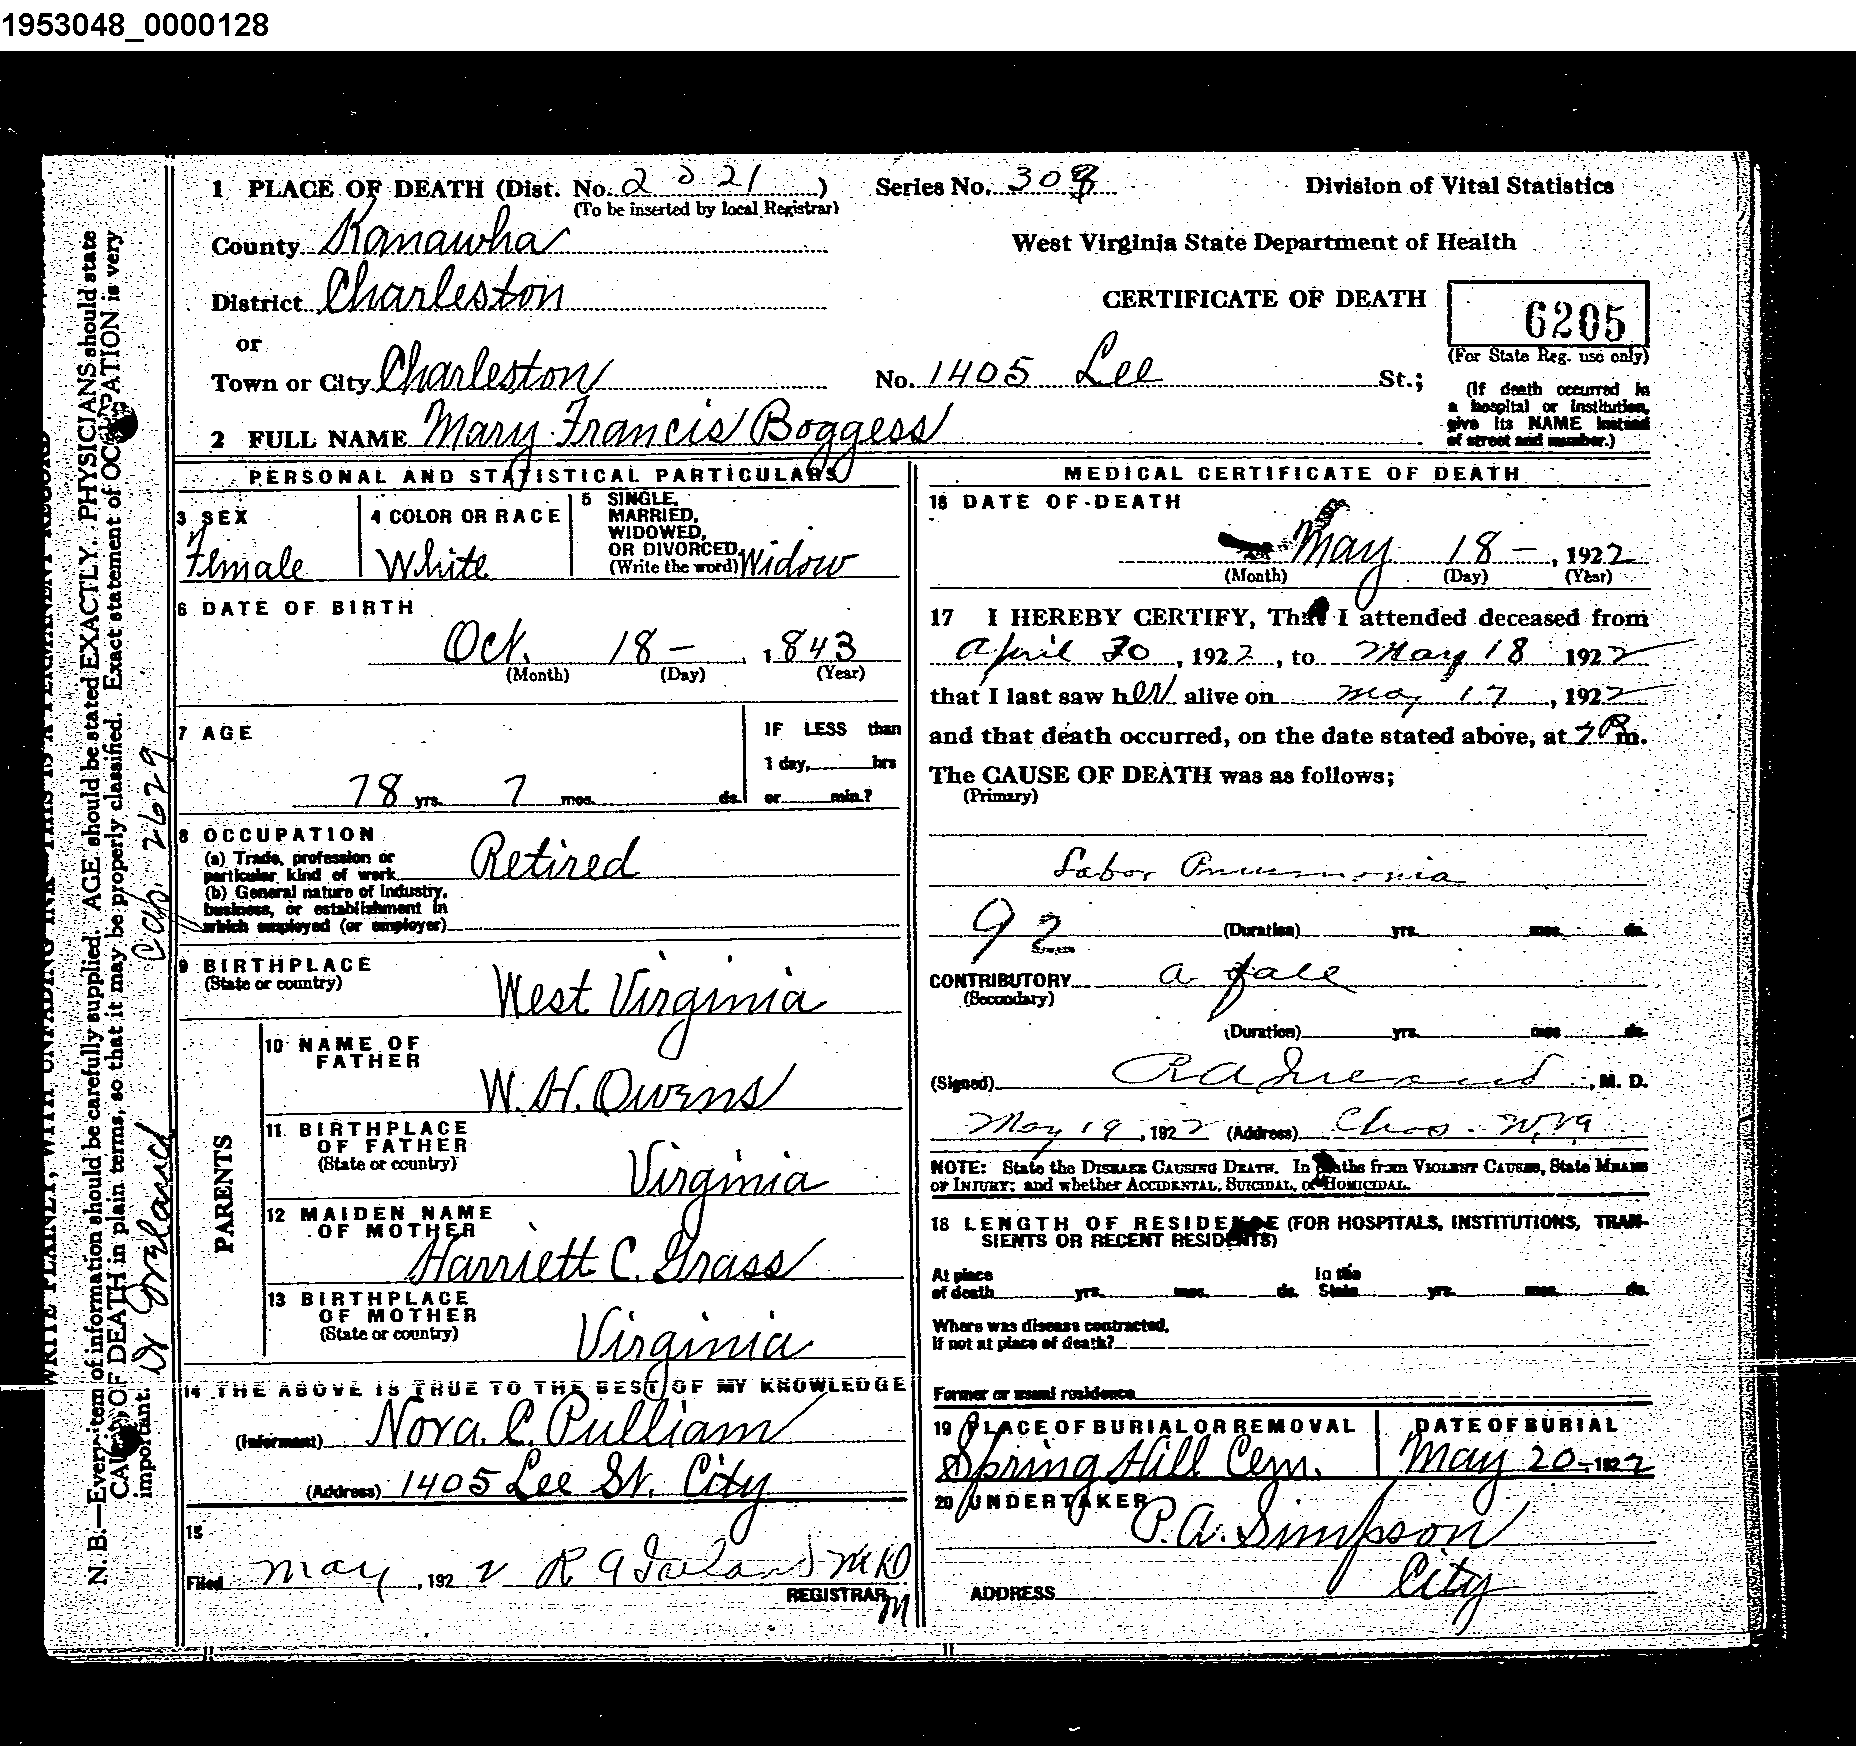 1953048_0000128
1 PLACE OF DEATH (Dist. No. 2 0 21 )
(To be inserted by local Registrar)
Series No. 308
Division of Vital Statistics
County Kanawha
West Virginia State Department of Health
District Charleston
CERTIFICATE OF DEATH
6205
(For State Reg. use only)
or
Town or City Charleston
No. 1405 Lee St.;
(If death occurred in
a hospital or institution,
give its NAME instead
of street and number.)
2 FULL NAME Mary Francis Boggess
PERSONAL AND STATISTICAL PARTICULARS
3 SEX
Female
4 COLOR OR RACE
White
5 SINGLE,
MARRIED,
WIDOWED,
OR DIVORCED
(Write the word) Widow
6 DATE OF BIRTH
Oct. 18 - , 1843
(Month) (Day) (Year)
7 AGE
78 yrs. 7 mos. ds.
IF LESS than
1 day, hrs
or min.?
8 OCCUPATION
(a) Trade, profession or
particular kind of work Retired
(b) General nature of Industry,
business, or establishment in
which employed (or employer)
9 BIRTHPLACE
(State or country) West Virginia
PARENTS
10 NAME OF
FATHER
W. H. Owens
11 BIRTHPLACE
OF FATHER
(State or country) Virginia
12 MAIDEN NAME
OF MOTHER
Harriett C. Grass
13 BIRTHPLACE
OF MOTHER
(State or country) Virginia
14 THE ABOVE IS TRUE TO THE BEST OF MY KNOWLEDGE
(Informant) Nora. C. Pulliam
(Address) 1405 Lee St. City
15
Filed May , 1922 R A Ireland
REGISTRAR
MEDICAL CERTIFICATE OF DEATH
16 DATE OF DEATH
May 18 - , 1922
(Month) (Day) (Year)
17 I HEREBY CERTIFY, That I attended deceased from
April 30 , 1922 , to May 18 1922
that I last saw her alive on May 17 , 1922
and that death occurred, on the date stated above, at 7 P m.
The CAUSE OF DEATH was as follows;
(Primary)
Labor Pneumonia
92 (Duration) yrs. mos. ds.
CONTRIBUTORY a fall
(Secondary)
(Duration) yrs. mos. ds.
(Signed) R A Ireland , M. D.
May 19 , 1922 (Address) Chas. W. Va
NOTE: State the DISEASE CAUSING DEATH. In deaths from VIOLENT CAUSES, State MEANS
OF INJURY; and whether ACCIDENTAL, SUICIDAL, or HOMICIDAL.
18 LENGTH OF RESIDENCE (FOR HOSPITALS, INSTITUTIONS, TRAN-
SIENTS OR RECENT RESIDENTS)
At place
of death yrs. mos. ds.
In the
State yrs. mos. ds.
Where was disease contracted,
if not at place of death?
Former or usual residence
19 PLACE OF BURIAL OR REMOVAL
Spring Hill Cem.
DATE OF BURIAL
May 20 - 1922
20 UNDERTAKER
P. A. Simpson
City
ADDRESS
WRITE PLAINLY, WITH UNFADING INK—THIS IS A PERMANENT RECORD
N. B.—Every item of information should be carefully supplied. AGE should be stated EXACTLY. PHYSICIANS should state
CAUSE OF DEATH in plain terms, so that it may be properly classified. Exact statement of OCCUPATION is very
important.
Dr Ireland Cap. 2629